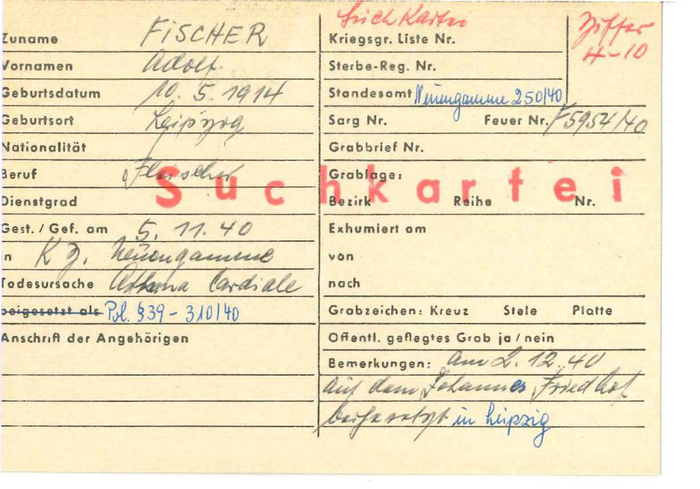 Suchkartei
Ziffer
4-10
Zuname FISCHER
Vornamen Adolf
Geburtsdatum 10. 5. 1914
Geburtsort Leipzig
Nationalität
Beruf Fleischer
Dienstgrad
Gest. / Gef. am 5. 11. 40
in KZ. Neuengamme
Todesursache Asthma Cardiale
beigesetzt als Pol. §39 - 310/40
Anschrift der Angehörigen
Suchkartei
Kriegsgr. Liste Nr.
Sterbe-Reg. Nr.
Standesamt Neuengamme 250/40
Sarg Nr. Feuer Nr. F5954/40
Grabbrief Nr.
Grablage:
Bezirk Reihe Nr.
Exhumiert am
von
nach
Grabzeichen: Kreuz Stele Platte
Öffentl. gepflegtes Grab ja / nein
Bemerkungen: am 2. 12. 40
auf dem Johannes Friedhof
beigesetzt in Leipzig